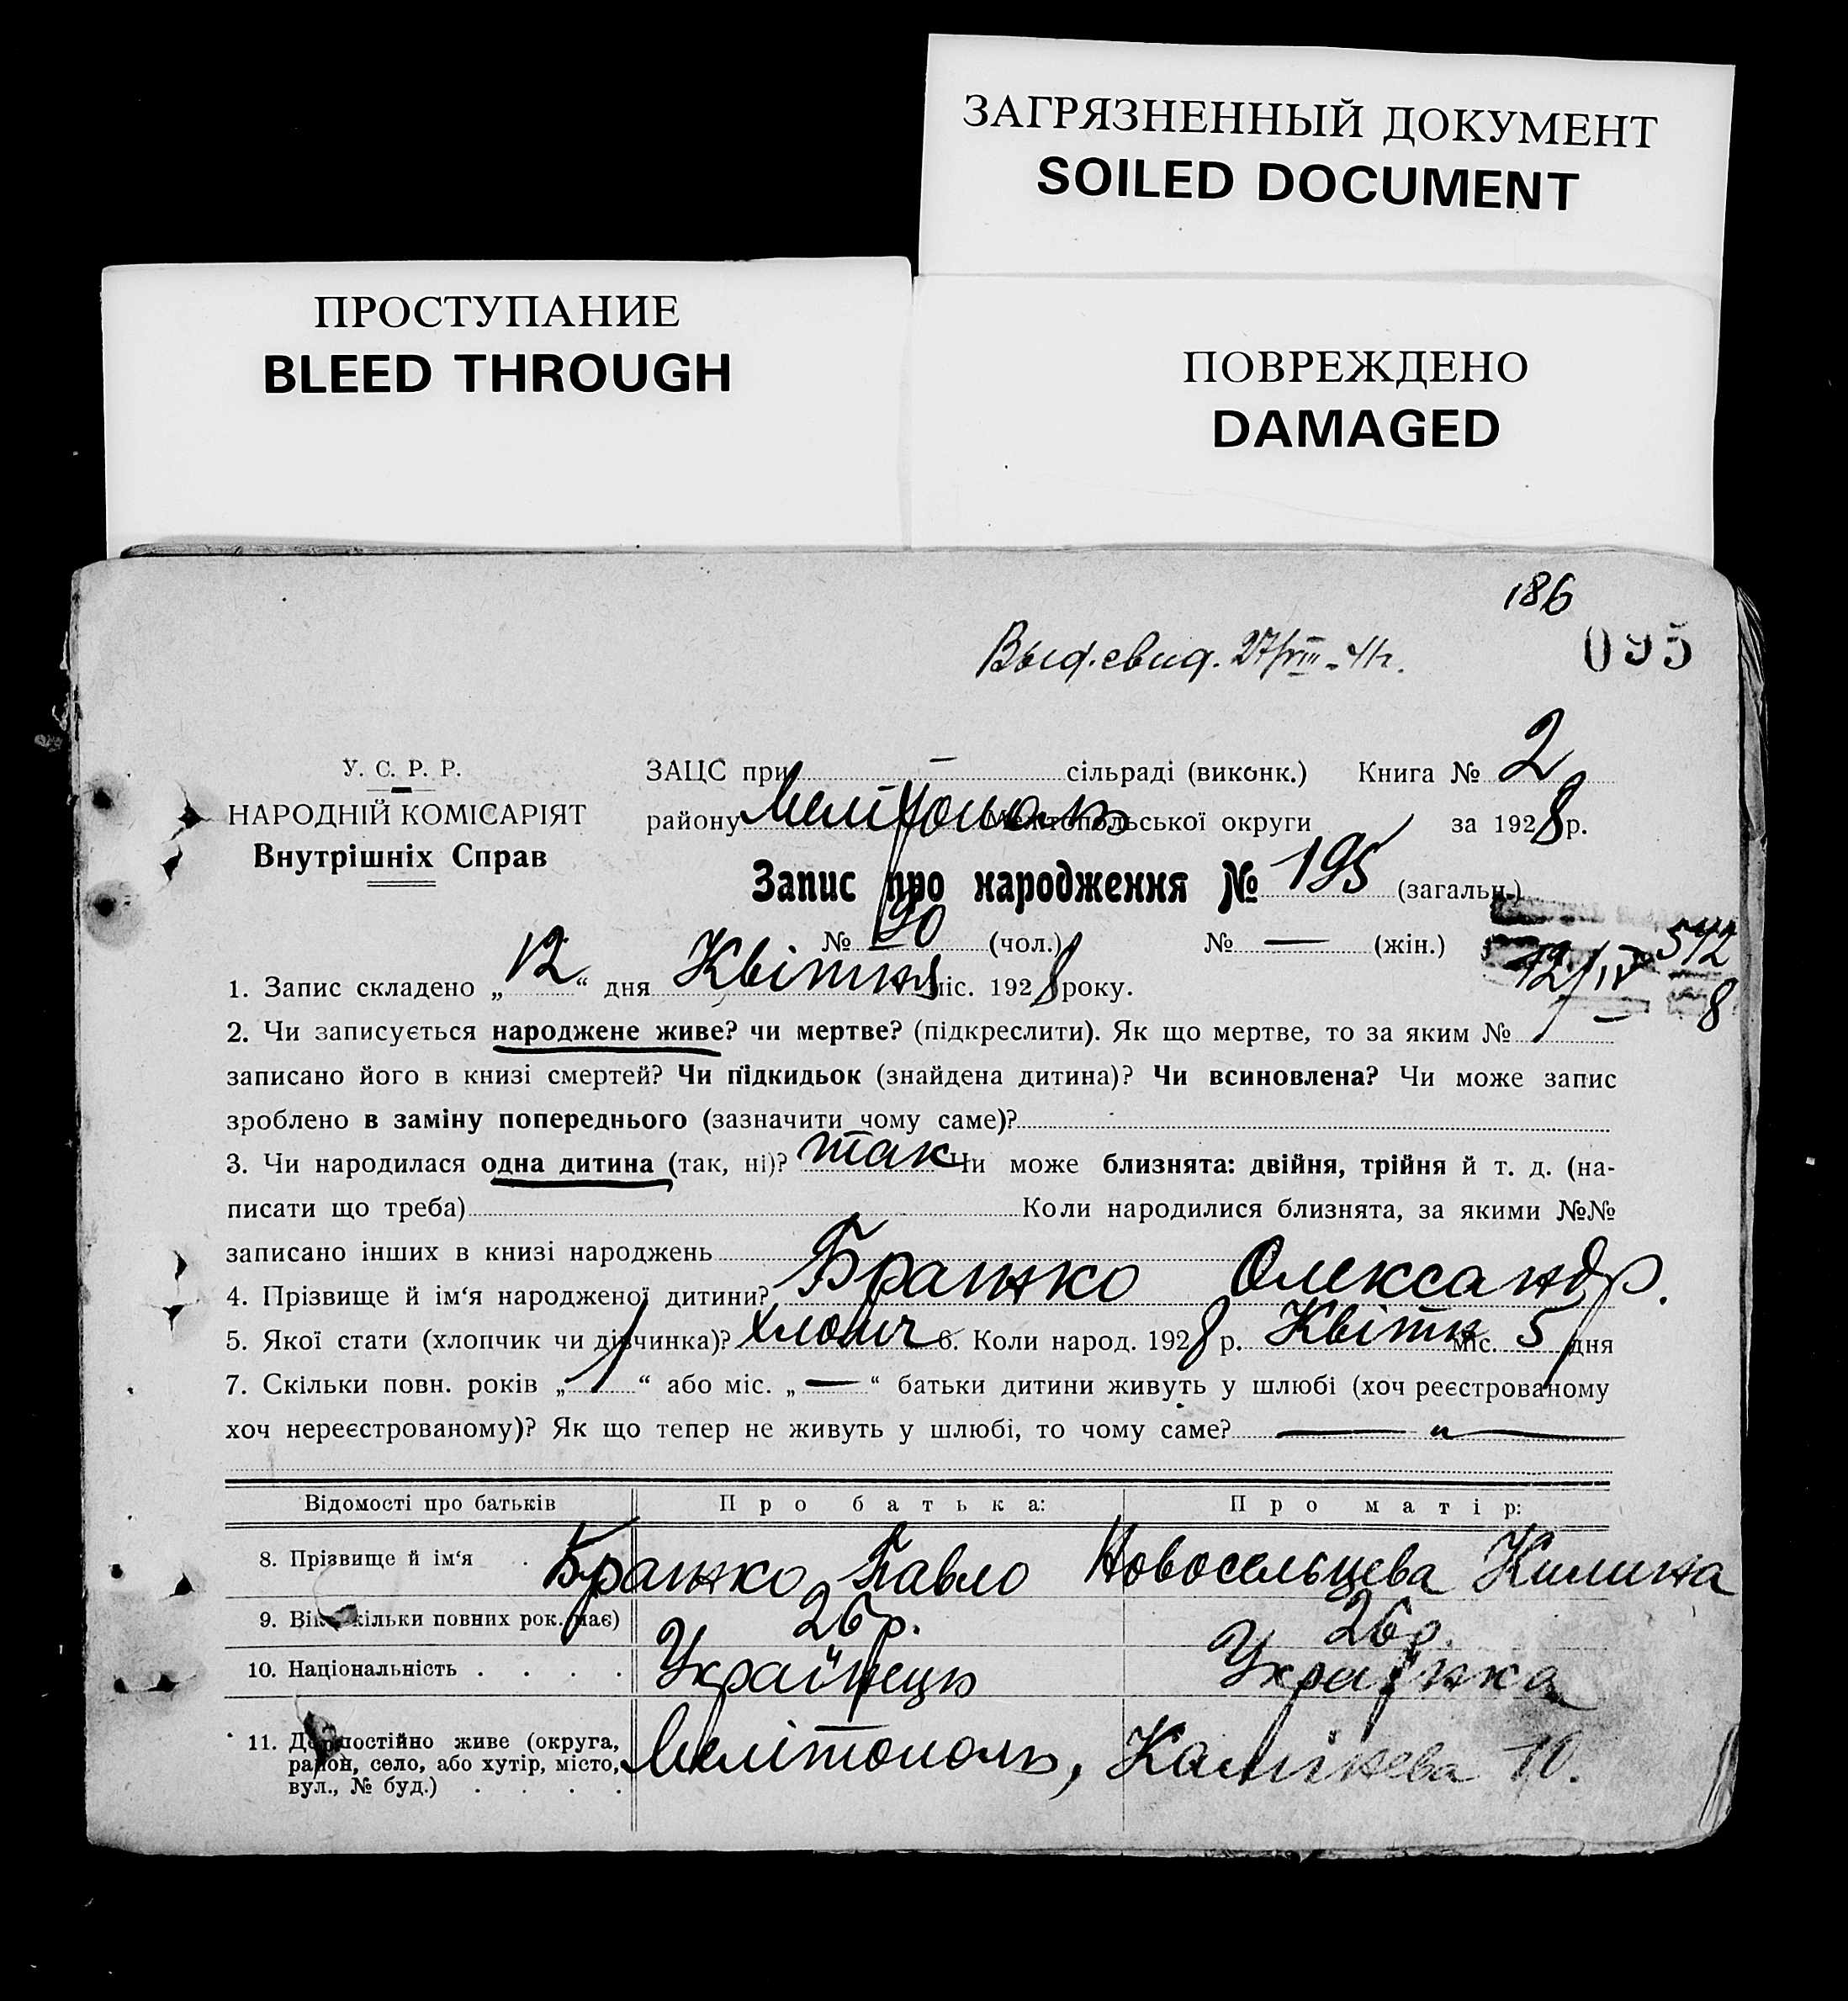 ЗАГРЯЗНЕННЫЙ ДОКУМЕНТ
SOILED DOCUMENT
ПРОСТУПАНИЕ
BLEED THROUGH
ПОВРЕЖДЕНО
DAMAGED
186
Выд. свид. 27/VIII - 41г.
095
У. С. Р. Р.
НАРОДНІЙ КОМІСАРІЯТ
Внутрішніх Справ
ЗАЦС при — сільраді (виконк.) Книга № 2
району Мелітополь Мелітопольської округи за 1928 р.
Запис про народження № 195 (загальн.)
№ 90 (чол.) № — (жін.)
542
12/IV 8
1. Запис складено „12“ дня Квітня міс. 1928 року.
2. Чи записується народжене живе? чи мертве? (підкреслити). Як що мертве, то за яким № —
записано його в книзі смертей? Чи підкидьок (знайдена дитина)? Чи всиновлена? Чи може запис
зроблено в заміну попереднього (зазначити чому саме)?
3. Чи народилася одна дитина (так, ні)? так Чи може близнята: двійня, трійня й т. д. (на-
писати що треба) Коли народилися близнята, за якими №№
записано інших в книзі народжень
4. Прізвище й ім‘я народженої дитини? Бражко Олександр.
5. Якої стати (хлопчик чи дівчинка)? хлопч 6. Коли народ. 1928 р. Квітн міс. 5 дня
7. Скільки повн. років „1“ або міс. „—“ батьки дитини живуть у шлюбі (хоч реєстрованому
хоч нереєстрованому)? Як що тепер не живуть у шлюбі, то чому саме? — „ —
Відомості про батьків Про батька: Про матір:
8. Прізвище й ім‘я . Бражко Павло Новосельцева Килина
9. Вік (скільки повних рок. має) 26 р. 26 р.
10. Національність . . . . Українець Українка
11. Де постійно живе (округа,
район, село, або хутір, місто,
вул., № буд.) . . . . Мелітополь, 10.